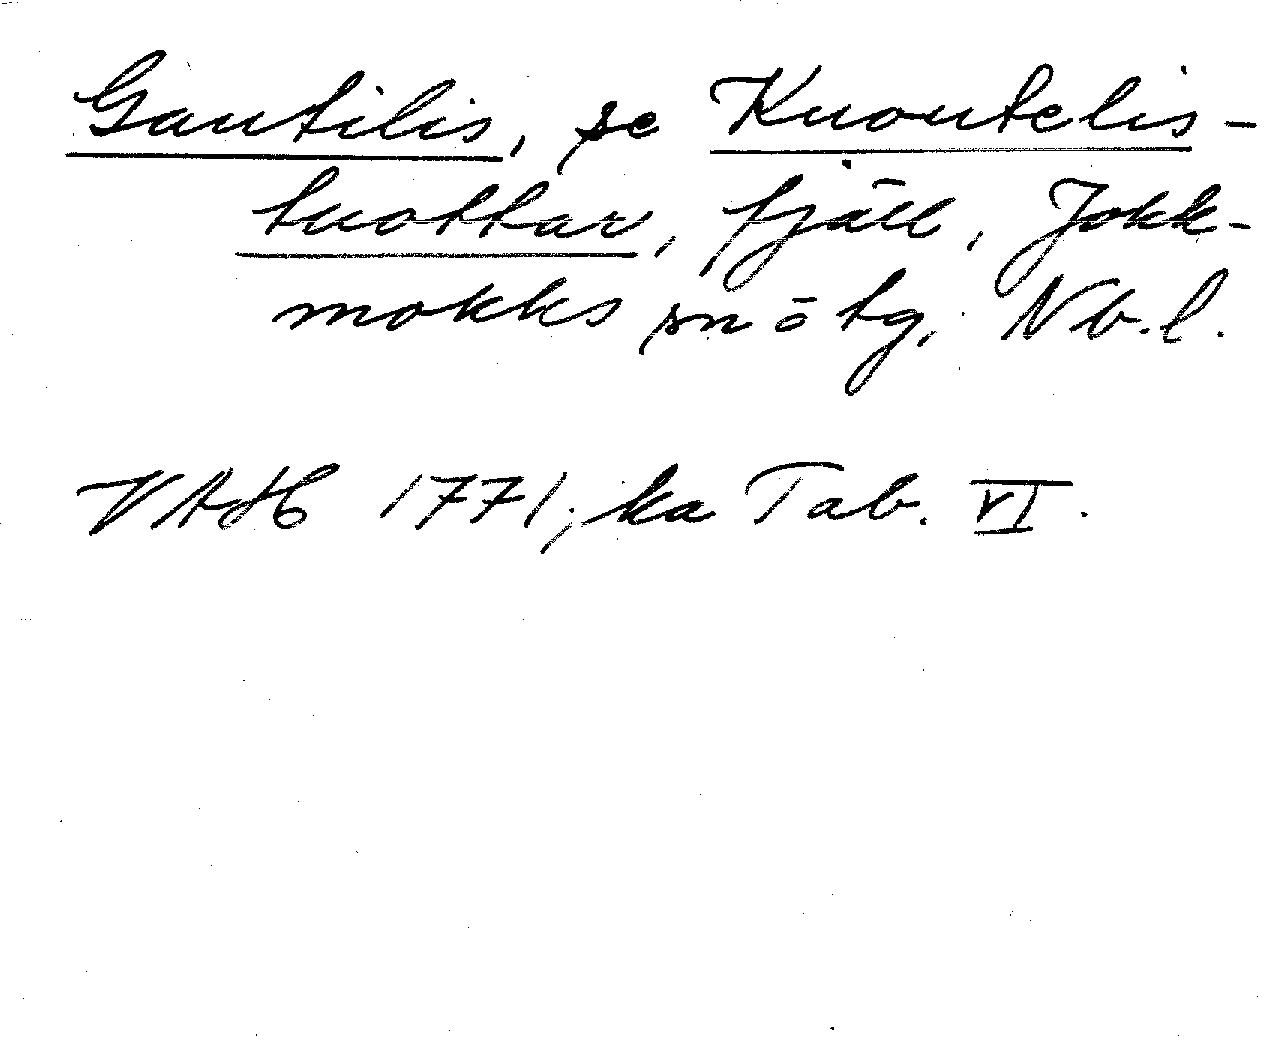 Gautilis, se Kuoutelis-
tuottar, fjäll, Jokk-
mokks sn o tg, Nb.l.
VAH 1771, ka Tab. VI.